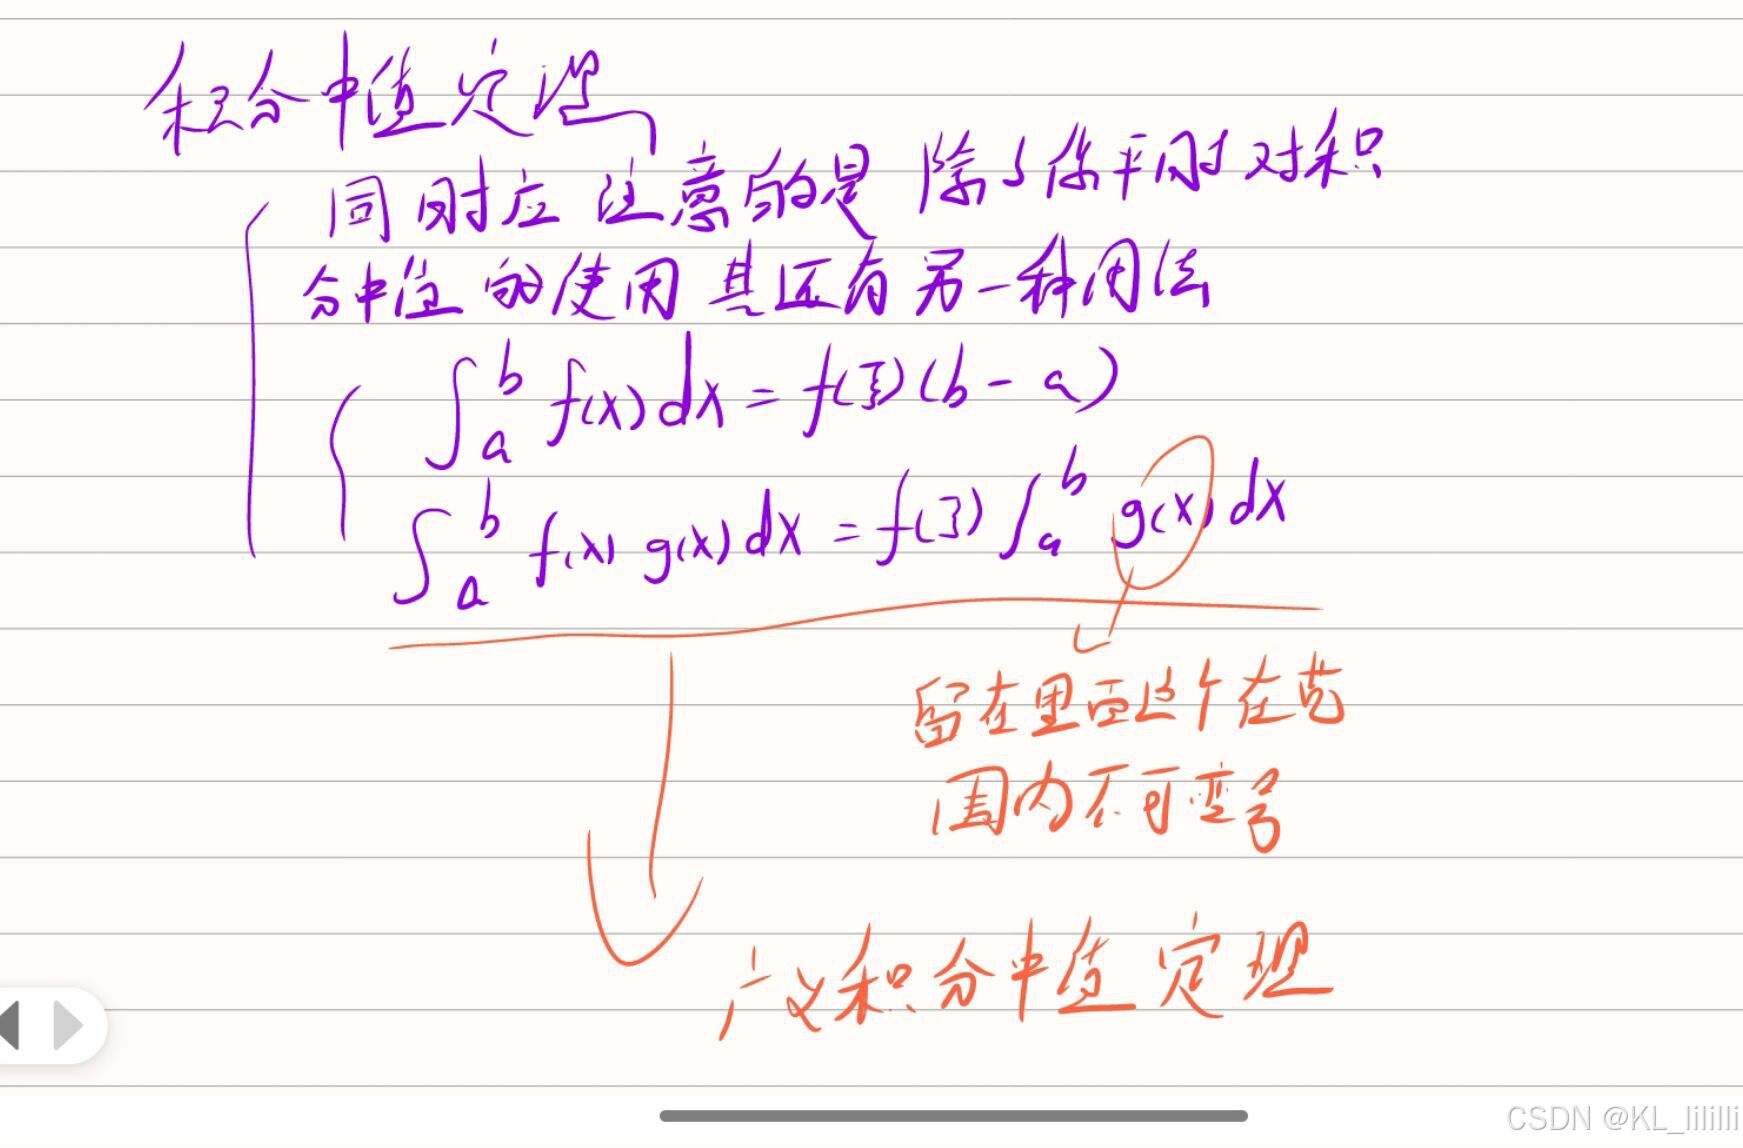 积分中值定理
同时应注意的是 除了你平时对积
分中值的使用 其还有另一种用法
∫_a^b f(x)dx = f(ξ)(b-a)
∫_a^b f(x)g(x)dx = f(ξ)∫_a^b g(x)dx
留在里面这个在范
围内不可变号
广义积分中值定理
CSDN @KL_lilillli